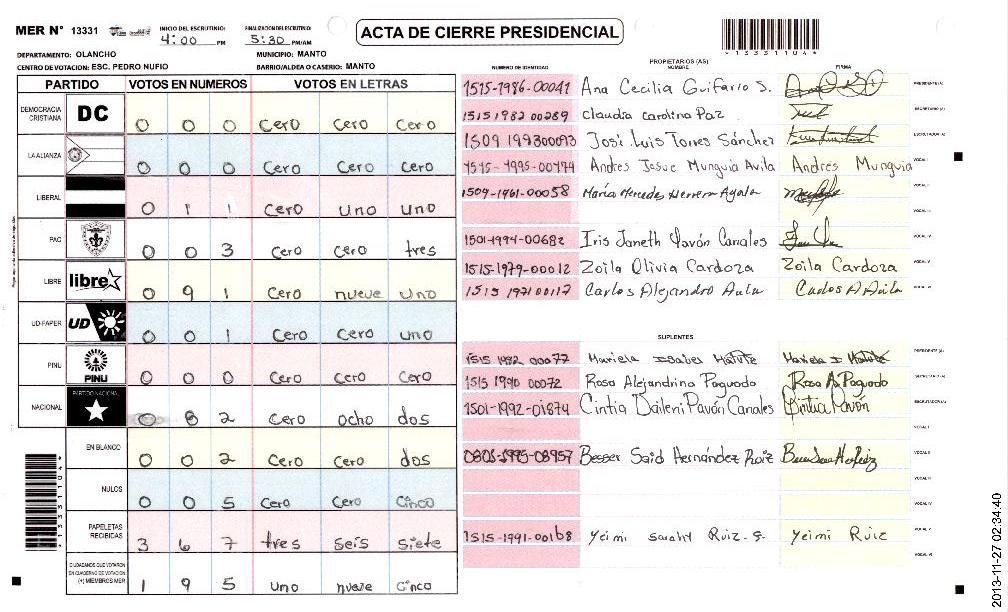 MER N° 13331
INICIO DEL ESCRUTINIO: 4:00 PM
FINALIZACION DEL ESCRUTINIO: 5:30 PM/AM
ACTA DE CIERRE PRESIDENCIAL
*13331104*
DEPARTAMENTO: OLANCHO MUNICIPIO: MANTO
CENTRO DE VOTACION: ESC. PEDRO NUFIO BARRIO/ALDEA O CASERIO: MANTO
PARTIDO VOTOS EN NUMEROS VOTOS EN LETRAS
DEMOCRACIA CRISTIANA DC 0 0 0 Cero Cero Cero
LA ALIANZA 0 0 0 Cero Cero Cero
LIBERAL 0 1 1 Cero uno uno
PAC 0 0 3 Cero Cero tres
LIBRE libre 0 9 1 Cero nueve uno
UD-FAPER UD 0 0 1 Cero Cero uno
PINU PINU 0 0 0 Cero Cero Cero
NACIONAL PARTIDO NACIONAL 0 8 2 Cero ocho dos
EN BLANCO 0 0 2 Cero Cero dos
NULOS 0 0 5 Cero Cero Cinco
PAPELETAS RECIBIDAS 3 6 7 tres seis siete
CIUDADANOS QUE VOTARON EN CUADERNO DE VOTACION (+) MIEMBROS MER 1 9 5 uno nueve Cinco
*13331104*
PROPIETARIOS (AS)
NUMERO DE IDENTIDAD NOMBRE FIRMA
1515-1986-00041 Ana Cecilia Guifarro S. PRESIDENTE (A)
1515 1982 00289 Claudia Carolina Paz SECRETARIO (A)
1509 199300093 José Luis Torres Sánchez ESCRUTADOR (A)
1515-1995-00194 Andres Josue Munguia Avila Andres Munguia VOCAL I
1509-1961-00058 María Mercedes Herrera Ayala VOCAL II
VOCAL III
1501-1994-00682 Iris Janeth Pavón Canales VOCAL IV
1515-1979-00012 Zoila Olivia Cardoza Zoila Cardoza VOCAL V
1515 1971 00117 Carlos Alejandro Avila Carlos A Avila VOCAL VI
SUPLENTES
1515 1982 00077 Mariela Isabel Matute Mariela I Matute PRESIDENTE (A)
1515 1990 00072 Rosa Alejandrina Paguado Rosa A Paguado SECRETARIO (A)
1501-1992-01874 Cintia Daileni Pavón Canales Cintia Pavón ESCRUTADOR (A)
VOCAL I
0805-1995-08957 Besser Said Hernández Ruiz VOCAL II
VOCAL III
VOCAL IV
1515-1991-00168 Yeimi Sarahy Ruiz. G. Yeimi Ruiz VOCAL V
VOCAL VI
2013-11-27 02:34:40